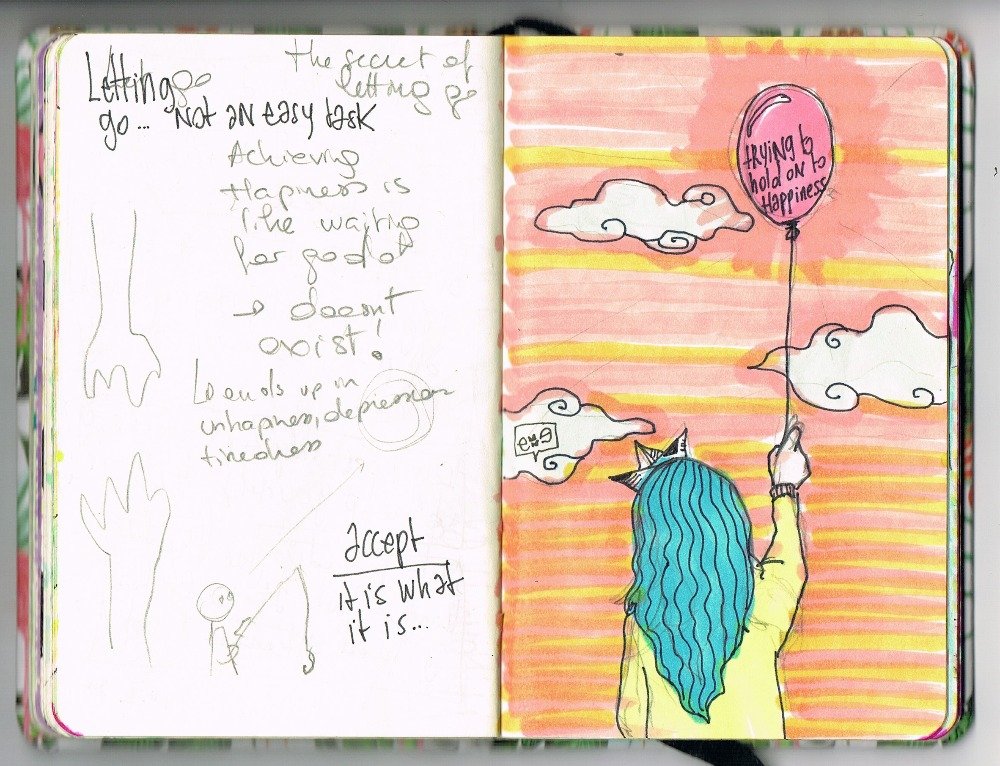 Letting go
go... Not an easy task
the secret of
letting go
Achieving
Hapiness is
like waiting
for godot
→ doesnt
exist!
↳ ends up in
unhapiness, depression
tiredness
accept
it is what
it is...
trying to
hold on to
Happiness